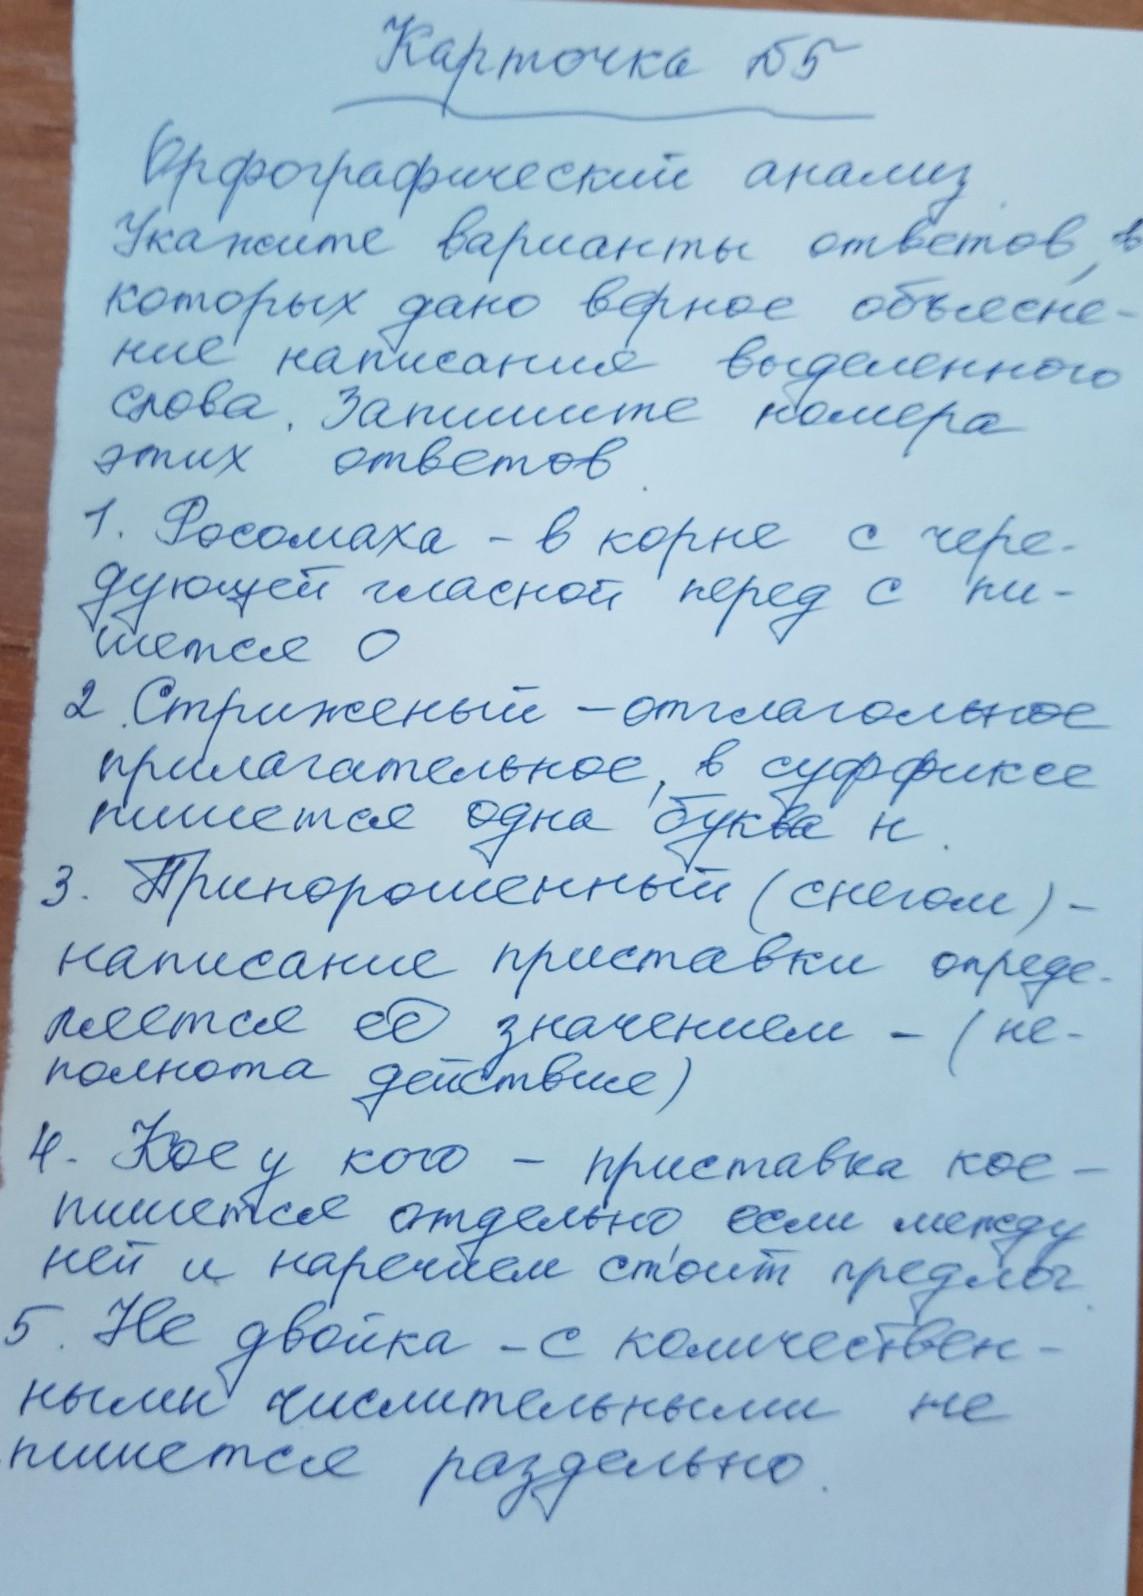 Карточка №5
Орфографический анализ
Укажите варианты ответов, в
которых дано верное объясне-
ние написания выделенного
слова. Запишите номера
этих ответов.
1. Росомаха - в корне с чере-
дующей гласной перед с пи-
шется О
2. Стриженый - отглагольное
прилагательное, в суффиксе
пишется одна буква н.
3. Припорошенный (снегом) -
написание приставки опреде-
ляется её значением - (не-
полнота действия)
4. Кое у кого - приставка кое -
пишется отдельно, если между
ней и наречием стоит предлог.
5. Не двойка - с количествен-
ными числительными не
пишется раздельно.